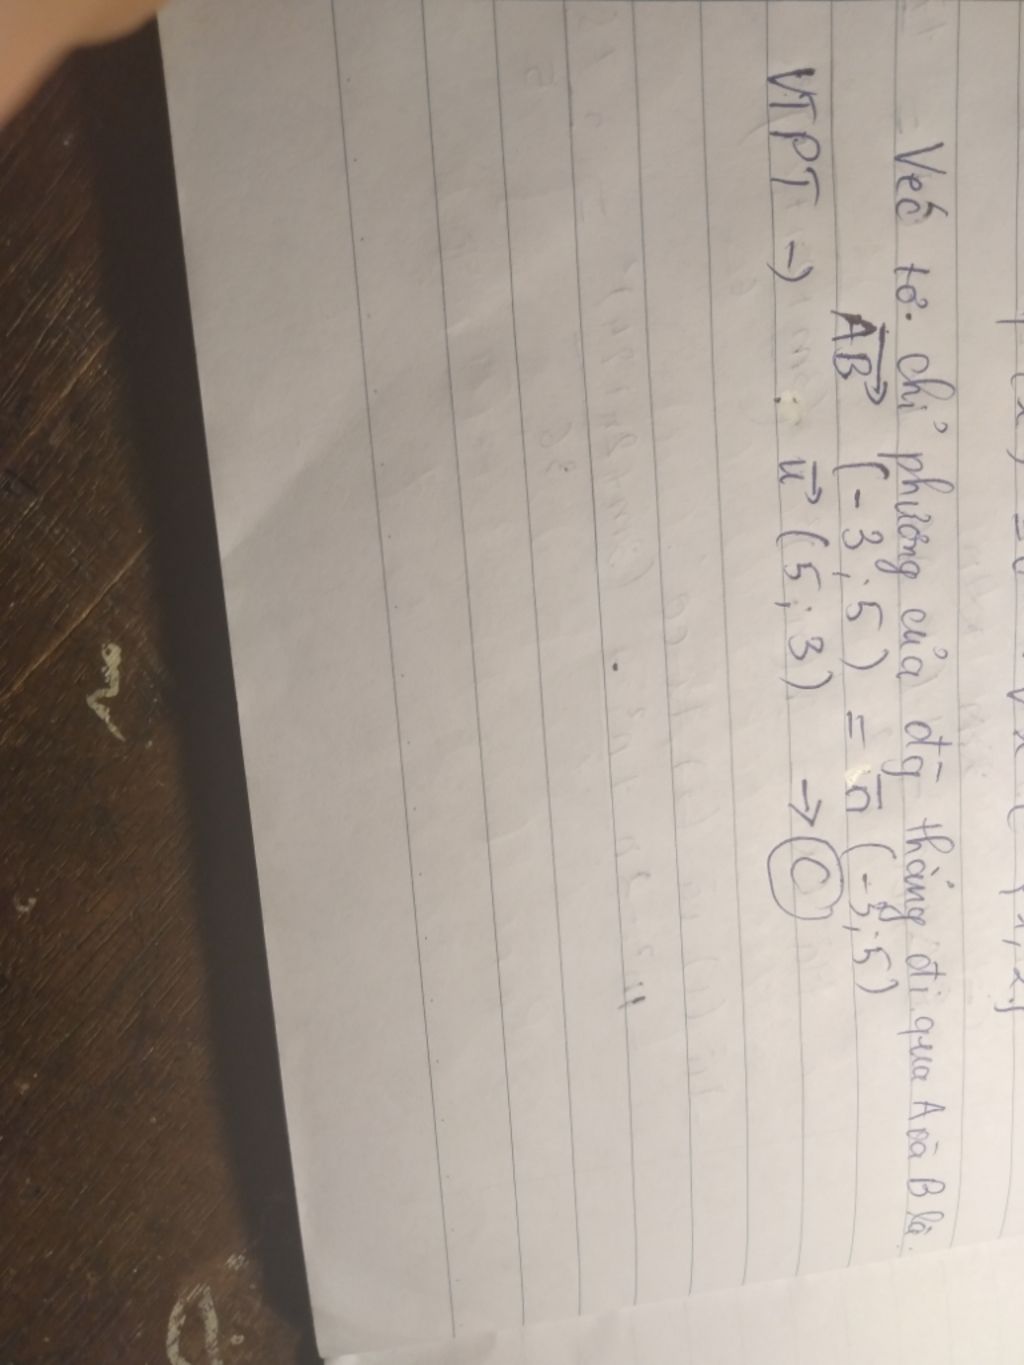 Véc tơ chỉ phương của đg thẳng đi qua A và B là
AB (-3; 5) = n (-3; 5)
VTPT → u (5; 3) → C